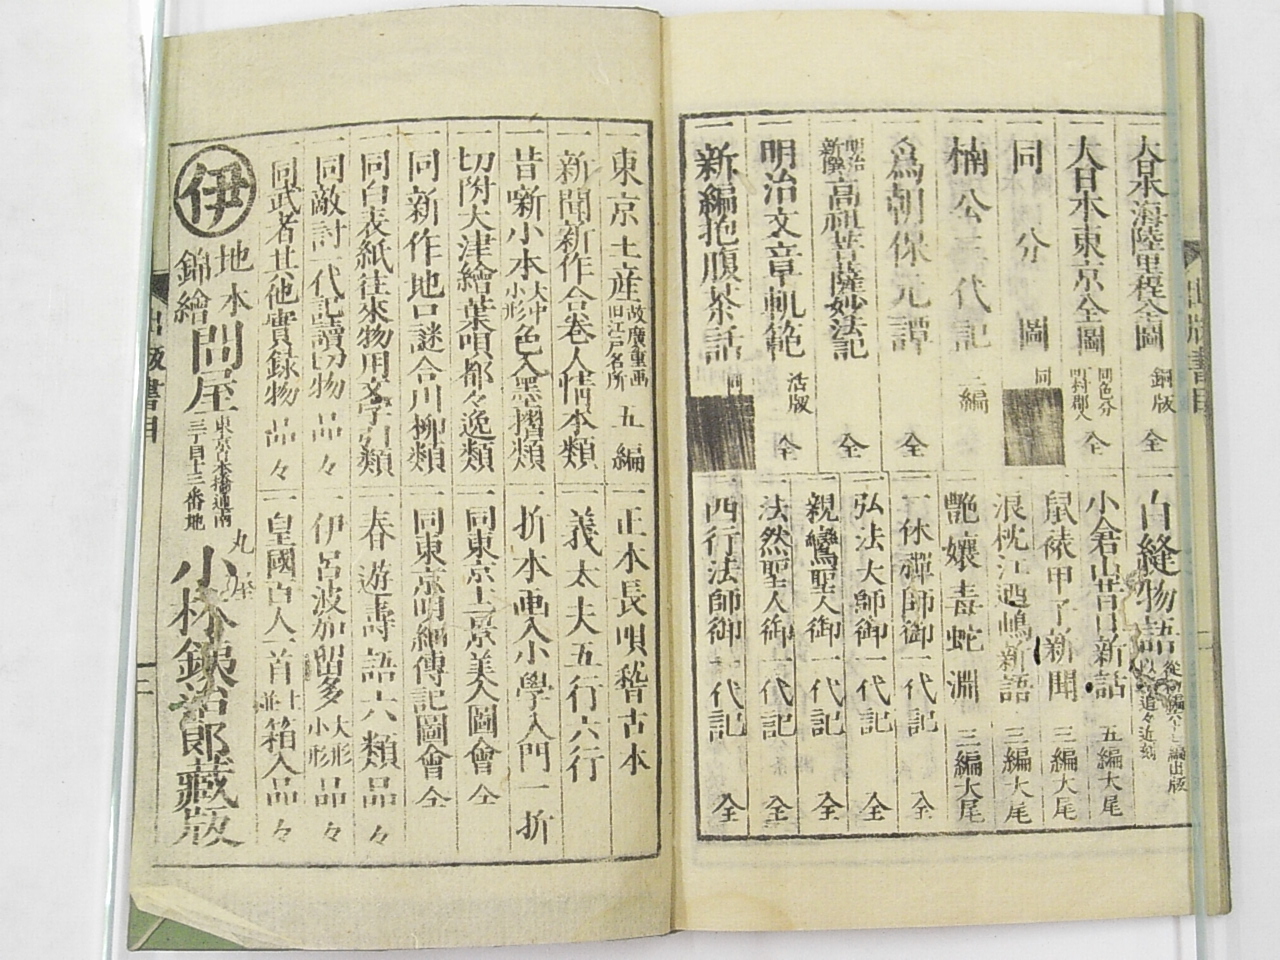 大日本海陸里程全圖 銅版 全
一大日本東京全圖 同色分 町村郡入 全
一同分圖 同
一楠公三代記 二編
一爲朝保元譚 全
明治新撰高祖菩薩妙法記 全
一明治文章軌範 活版 全
一新編抱腹茶話 同
白縫物語
小倉山昔日新話 五編大尾
鼠裱甲子新聞 三編大尾
浪枕江の嶋新語 三編大尾
艷孃毒蛇淵 三編大尾
一休禪師御一代記 全
弘法大師御一代記 全
親鸞聖人御一代記 全
法然聖人御一代記 全
西行法師御一代記 全
出版書目
一東京土産 故廣重画 旧江戸名所 五編
一新聞新作合巻人情本類
一昔噺小本 大中小形 色入墨摺類
一切附大津繪葉唄都々逸類
一同新作地口謎合川柳類
一同白表紙往來物用文字引類
一同敵討一代記讀切物品々
一同武者其他實録物品々
一正本長唄稽古本
一義太夫五行六行
一折本画入小學入門一折
一同東京土京美人圖會 仝
一同東京明細傳記圖會 仝
一春遊壽語六類品々
一伊呂波加留多 大形小形 品々
一皇國百人一首 並 上 箱入品々
伊
地本
錦繪
問屋
東京日本橋通南
三丁目十三番地
丸屋
小林鉄治郎藏版
出版書目